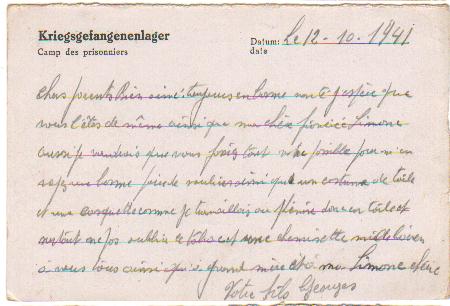 Kriegsgefangenenlager
Camp des prisonniers
Datum: Le 12-10-1941
date
Chers parents bien aimé toujours en bonne santé j'espère que
vous l'êtes de même ainsi que ma chère fiancée Simone
aussi je voudrais que vous fassiez tout votre possible pour m'en
une bonne paire de souliers ainsi qu'un costume de toile
et une casquette comme je travaillais au donc en toile et
surtout ne pas oublier le tabac et une chemisette mille baiser
à vous tous ainsi qu'à grand mère et à ma Simone chérie
Votre fils Georges